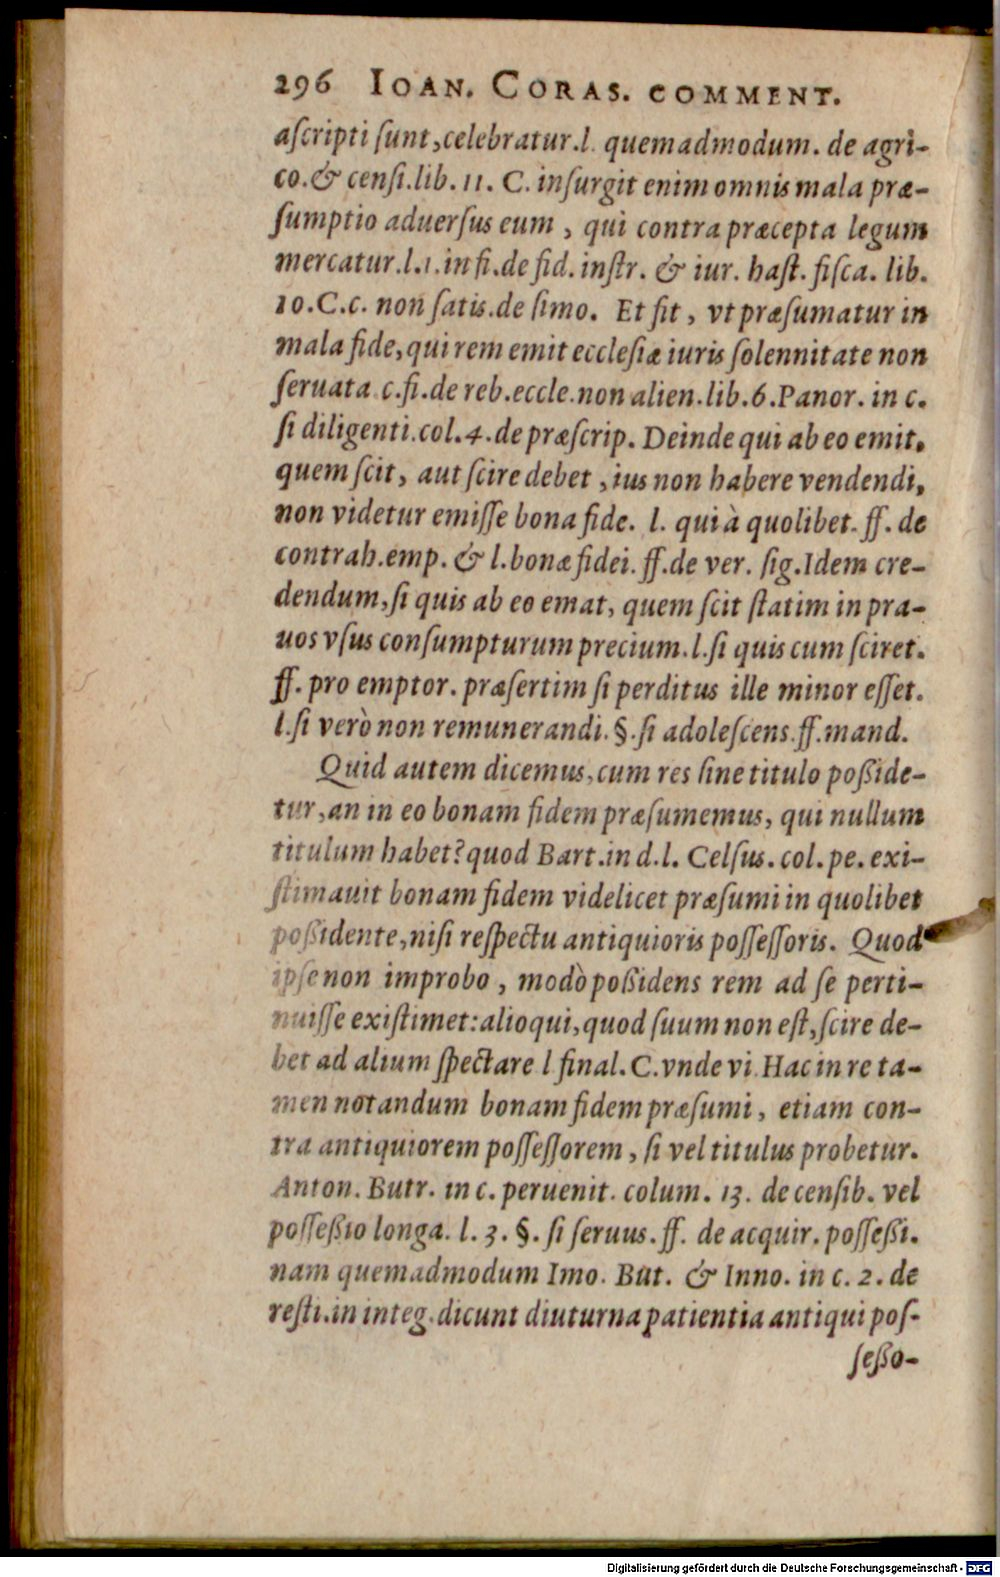 296 IOAN. CORAS. COMMENT.
aſcripti ſunt, celebratur. l. quemadmodum. de agri-
co. & cenſi. lib. 11. C. inſurgit enim omnis mala præ-
ſumptio aduerſus eum, qui contra præcepta legum
mercatur. l. 1. in fi. de fid. inſtr. & iur. haſt. fiſca. lib.
10. C. c. non ſatis. de ſimo. Et fit, vt præſumatur in
mala fide, qui rem emit eccleſiæ iuris ſolennitate non
ſeruata c. fi. de reb. eccle. non alien. lib. 6. Panor. in c.
ſi diligenti. col. 4. de præſcrip. Deinde qui ab eo emit,
quem ſcit, aut ſcire debet, ius non habere vendendi,
non videtur emiſſe bona fide. l. qui à quolibet. ff. de
contrah. emp. & l. bonæ fidei. ff. de ver. ſig. Idem cre-
dendum, ſi quis ab eo emat, quem ſcit ſtatim in pra-
uos vſus conſumpturum precium. l. ſi quis cum ſciret.
ff. pro emptor. præſertim ſi perditus ille minor eſſet.
l. ſi verò non remunerandi. §. ſi adoleſcens. ff. mand.
Quid autem dicemus, cum res ſine titulo poßide-
tur, an in eo bonam fidem præſumemus, qui nullum
titulum habet? quod Bart. in d. l. Celſus. col. pe. exi-
ſtimauit bonam fidem videlicet præſumi in quolibet
poßidente, niſi reſpectu antiquioris poſſeſſoris. Quod
ipſe non improbo, modò poßidens rem ad ſe perti-
nuiſſe exiſtimet: alioqui, quod ſuum non eſt, ſcire de-
bet ad alium ſpectare l final. C. vnde vi. Hac in re ta-
men notandum bonam fidem præſumi, etiam con-
tra antiquiorem poſſeſſorem, ſi vel titulus probetur.
Anton. Butr. in c. peruenit. colum. 13. de cenſib. vel
poſſeßio longa. l. 3. §. ſi ſeruus. ff. de acquir. poſſeßi.
nam quemadmodum Imo. But. & Inno. in c. 2. de
reſti. in integ. dicunt diuturna patientia antiqui poſ-
ſeßo-
Digitalisierung gefördert durch die Deutsche Forschungsgemeinschaft - DFG